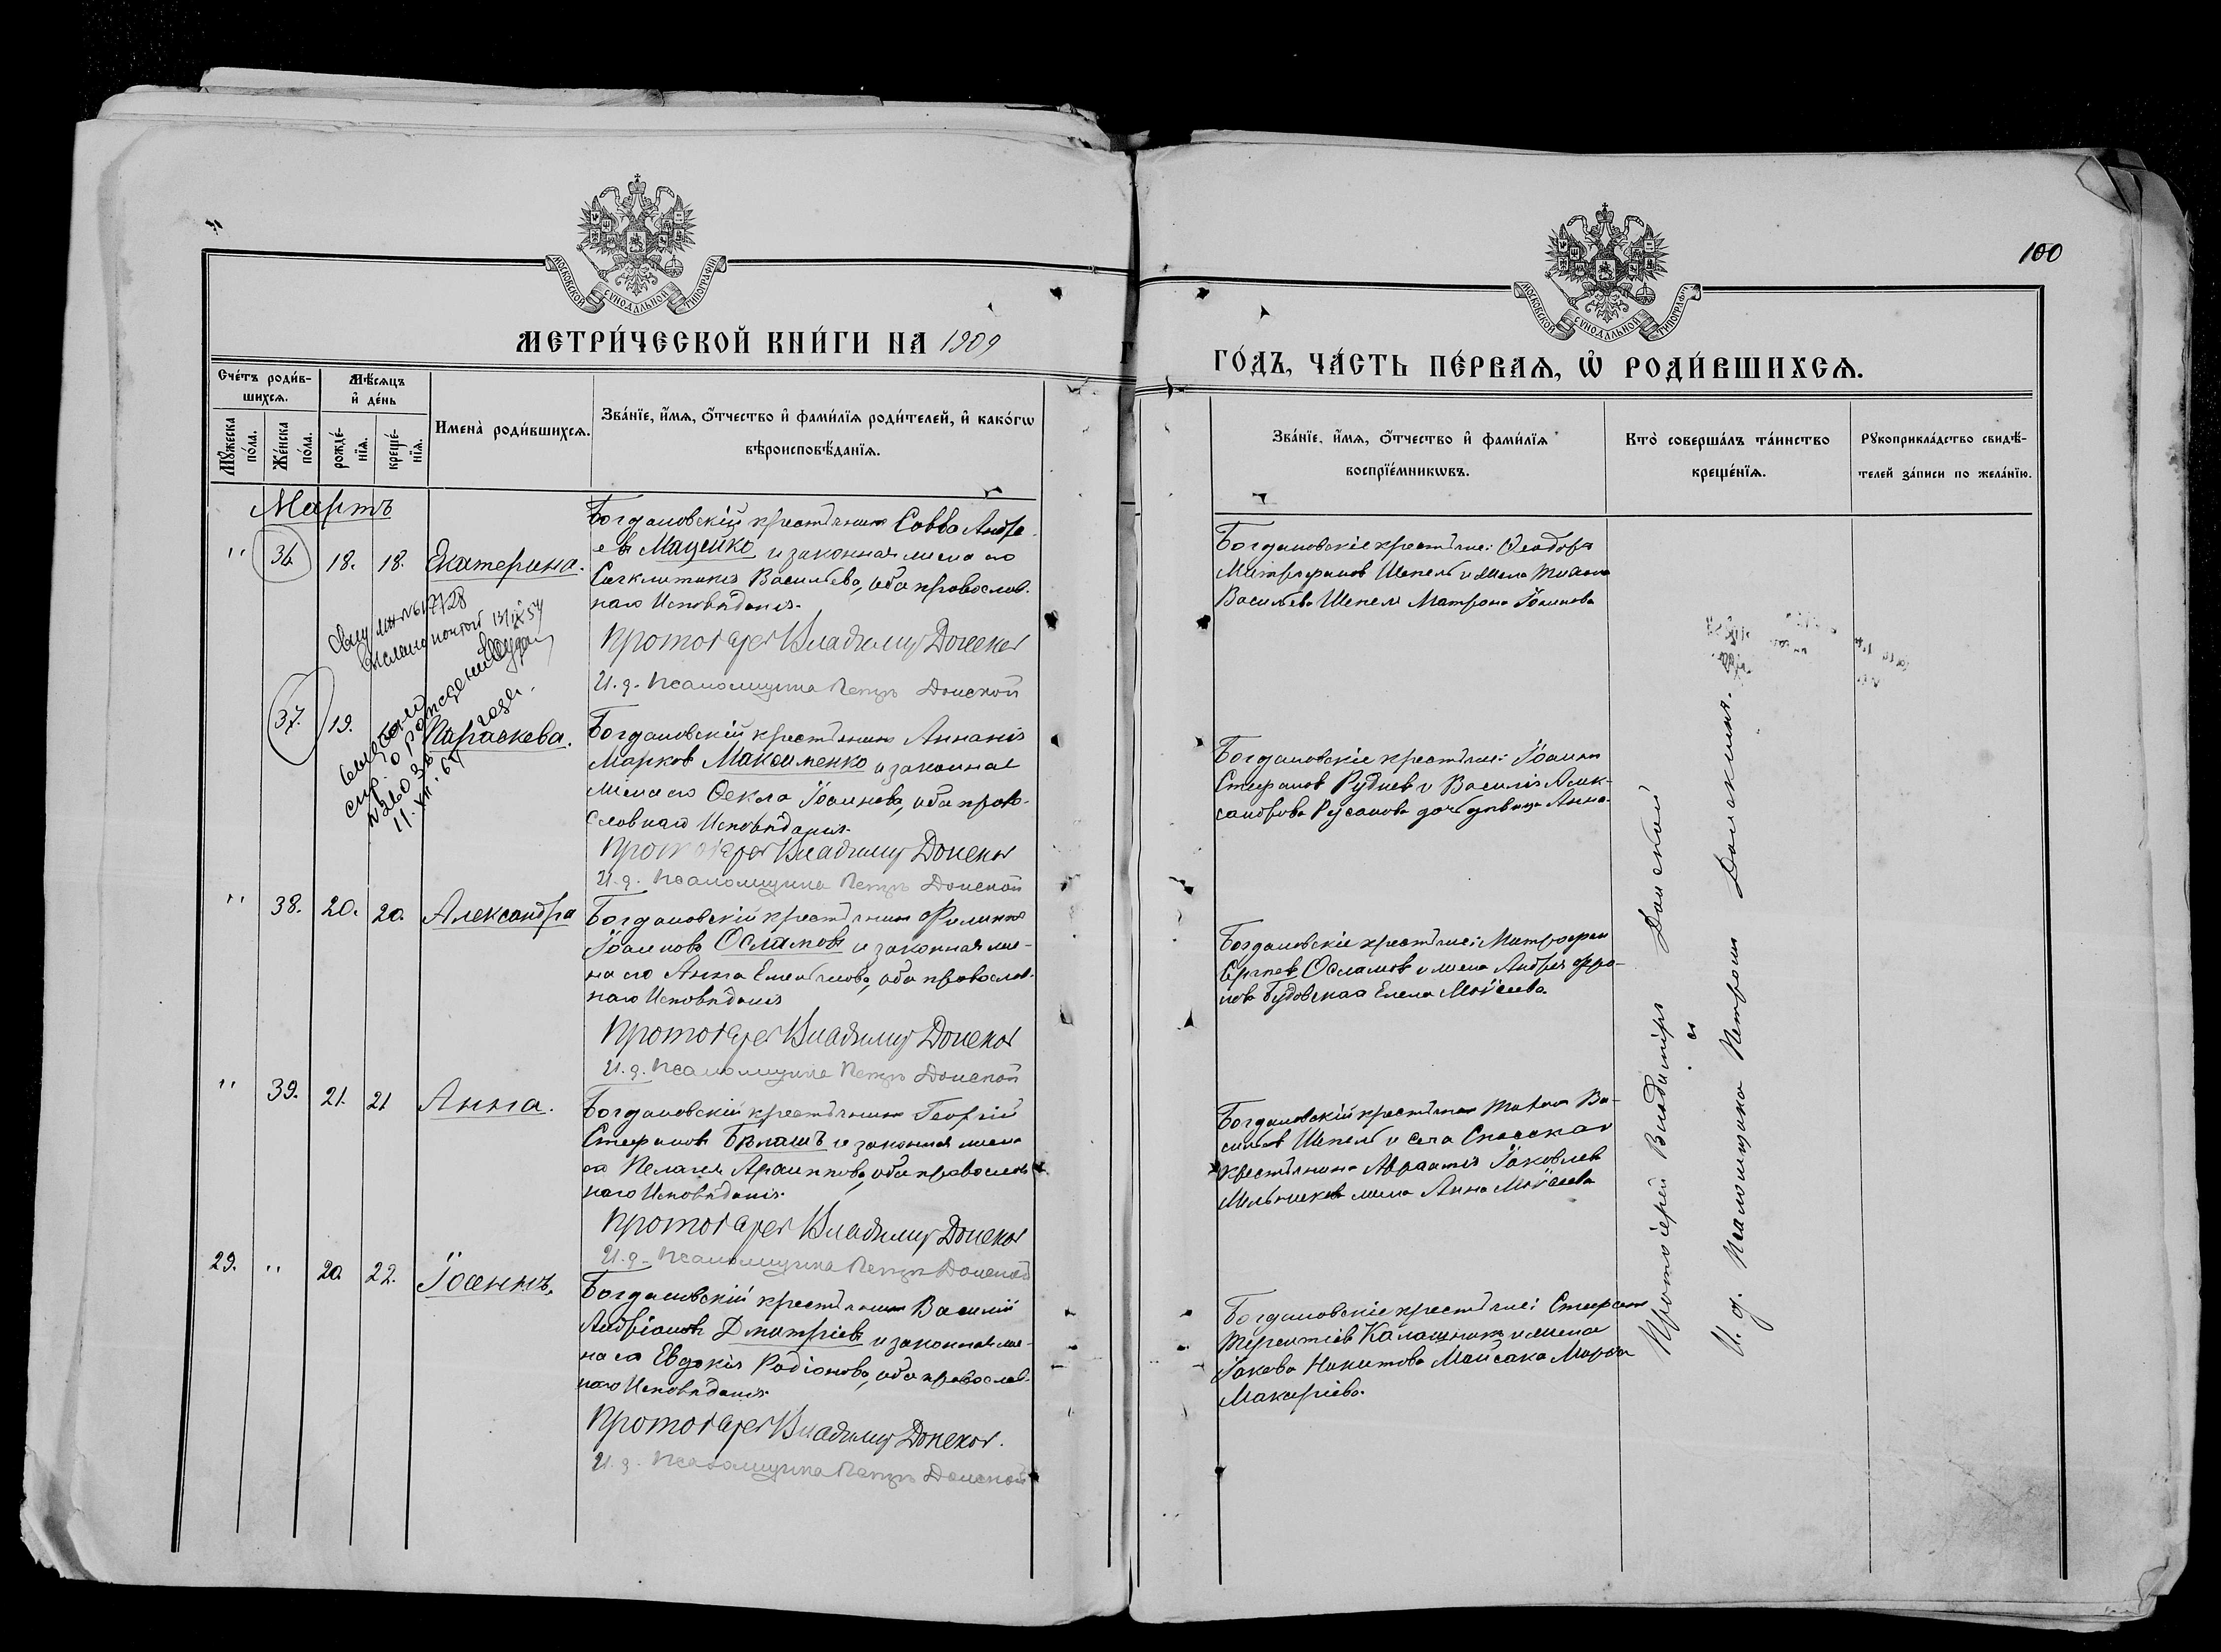 100
МОСКОВСКОЙ СУНОДАЛЬНОЙ ТИПОГРАФІИ
МОСКОВСКОЙ СУНОДАЛЬНОЙ ТИПОГРАФІИ
МЕТРИ́ЧЕСКОЙ КНИ́ГИ НА 1909
ГО́ДЪ, ЧА́СТЬ ПЕ́РВАѦ, Ѽ РОДИ́ВШИХСѦ.
Сче́тъ роди́в-
шихсѧ.
Мꙋ́жеска по́ла.
Же́нска по́ла.
Мѣ́сѧцъ
и҆ де́нь
рожде́-
нїѧ.
креще́-
нїѧ.
Имена̀ роди́вшихсѧ.
Зва́нїе, и҆́мѧ, ѻ҆́тчество и҆ фами́лїѧ роди́телей, и҆ како́гѡ
вѣроисповѣ́данїѧ.
Зва́нїе, и҆́мѧ, ѻ҆́тчество и҆ фами́лїѧ
воспрїе́мникѡвъ.
Кто̀ соверша́лъ та́инство
креще́нїѧ.
Рꙋкоприкла́дство свидѣ́-
телей за́писи по жела́нїю.
Мартъ
" 36. 18. 18. Екатерина.
Богдановскій крестьянинъ Савва Андре-
евъ Мацейко и законная жена его
Синклитикія Васильева, оба православ-
наго Исповѣданія.
Протоіерей Владимир Донской
И. д. Псаломщика Петръ Донской
Богдановскіе крестьяне: Ѳеодоръ
Митрофановъ Шепель и жена
Васильева Шепеля Матрона Іоаннова
37. 19.
Параскева.
Богдановскій крестьянинъ Ананія
Марковъ Максименко и законная
жена его Ѳекла Іоаннова, оба право-
славнаго Исповѣданія.
Протоіерей Владимир Донской
И. д. Псаломщика Петръ Донской
Богдановскіе крестьяне: Іоаннъ
Стефановъ Рудневъ и Василія Алек-
сандрова Русанова дочь дѣвица Анна.
" 38. 20. 20. Александра
Богдановскій крестьянинъ Филиппъ
Іоанновъ Осламовъ и законная же-
на его Анна Емельянова, оба православ-
наго Исповѣданія
Протоіерей Владимир Донской
И. д. Псаломщика Петръ Донской
Богдановскіе крестьяне: Митрофан
Сергѣевъ Осламовъ и жена Андрея
Елена Моѵсеева.
" 39. 21. 21 Анна.
Богдановскій крестьянинъ Георгій
Стефановъ и законная жена
его Пелагея оба православ
наго Исповѣданія.
Протоіерей Владимир Донской
И. д. Псаломщика Петръ Донской
Богдановскій крестьянинъ Ва-
сильевъ Шепель и села Спасскаго
крестьянина Іаковлева
Мельникова жена Анна Моѵсеева
29. " 20. 22. Іоаннъ.
Богдановскій крестьянинъ Василій
Андріановъ Дмитріевъ и законная же-
на его Евдокія Родіонова, оба православ-
наго Исповѣданія.
Протоіерей Владимир Донской.
И. д. Псаломщика Петръ Донской
Богдановскіе крестьяне: Стефанъ
Терентіевъ Калашникъ и жена
Іакова Никитова Майсака Марѳа
Макаріева.
Протоіерей Владиміръ Донской
и
И. д. Псаломщика Петромъ Донскимъ.